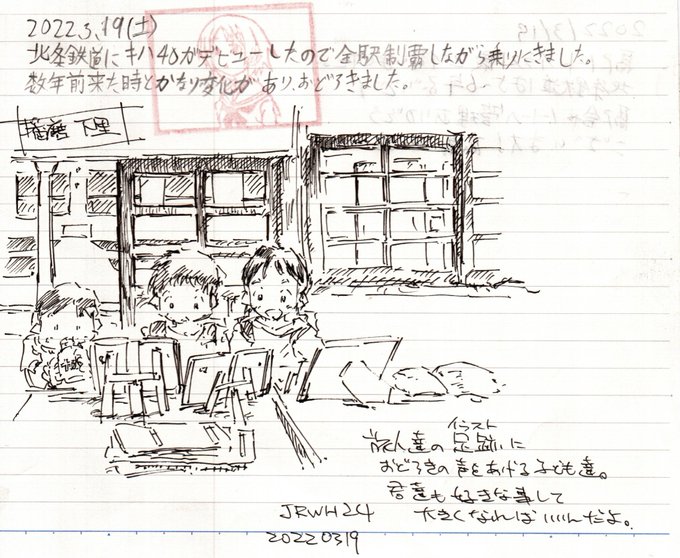 2022.3.19(土)
北条鉄道にキハ40がデビューしたので全駅制覇しながら乗りにきました。
数年前来た時とかなり変化があり、おどろきました。
播磨下里
イラスト
旅人達の足跡に
おどろきの声をあげる子ども達。
君達も好きな事して
大きくなればいいんだよ。
JRWH24
20220319